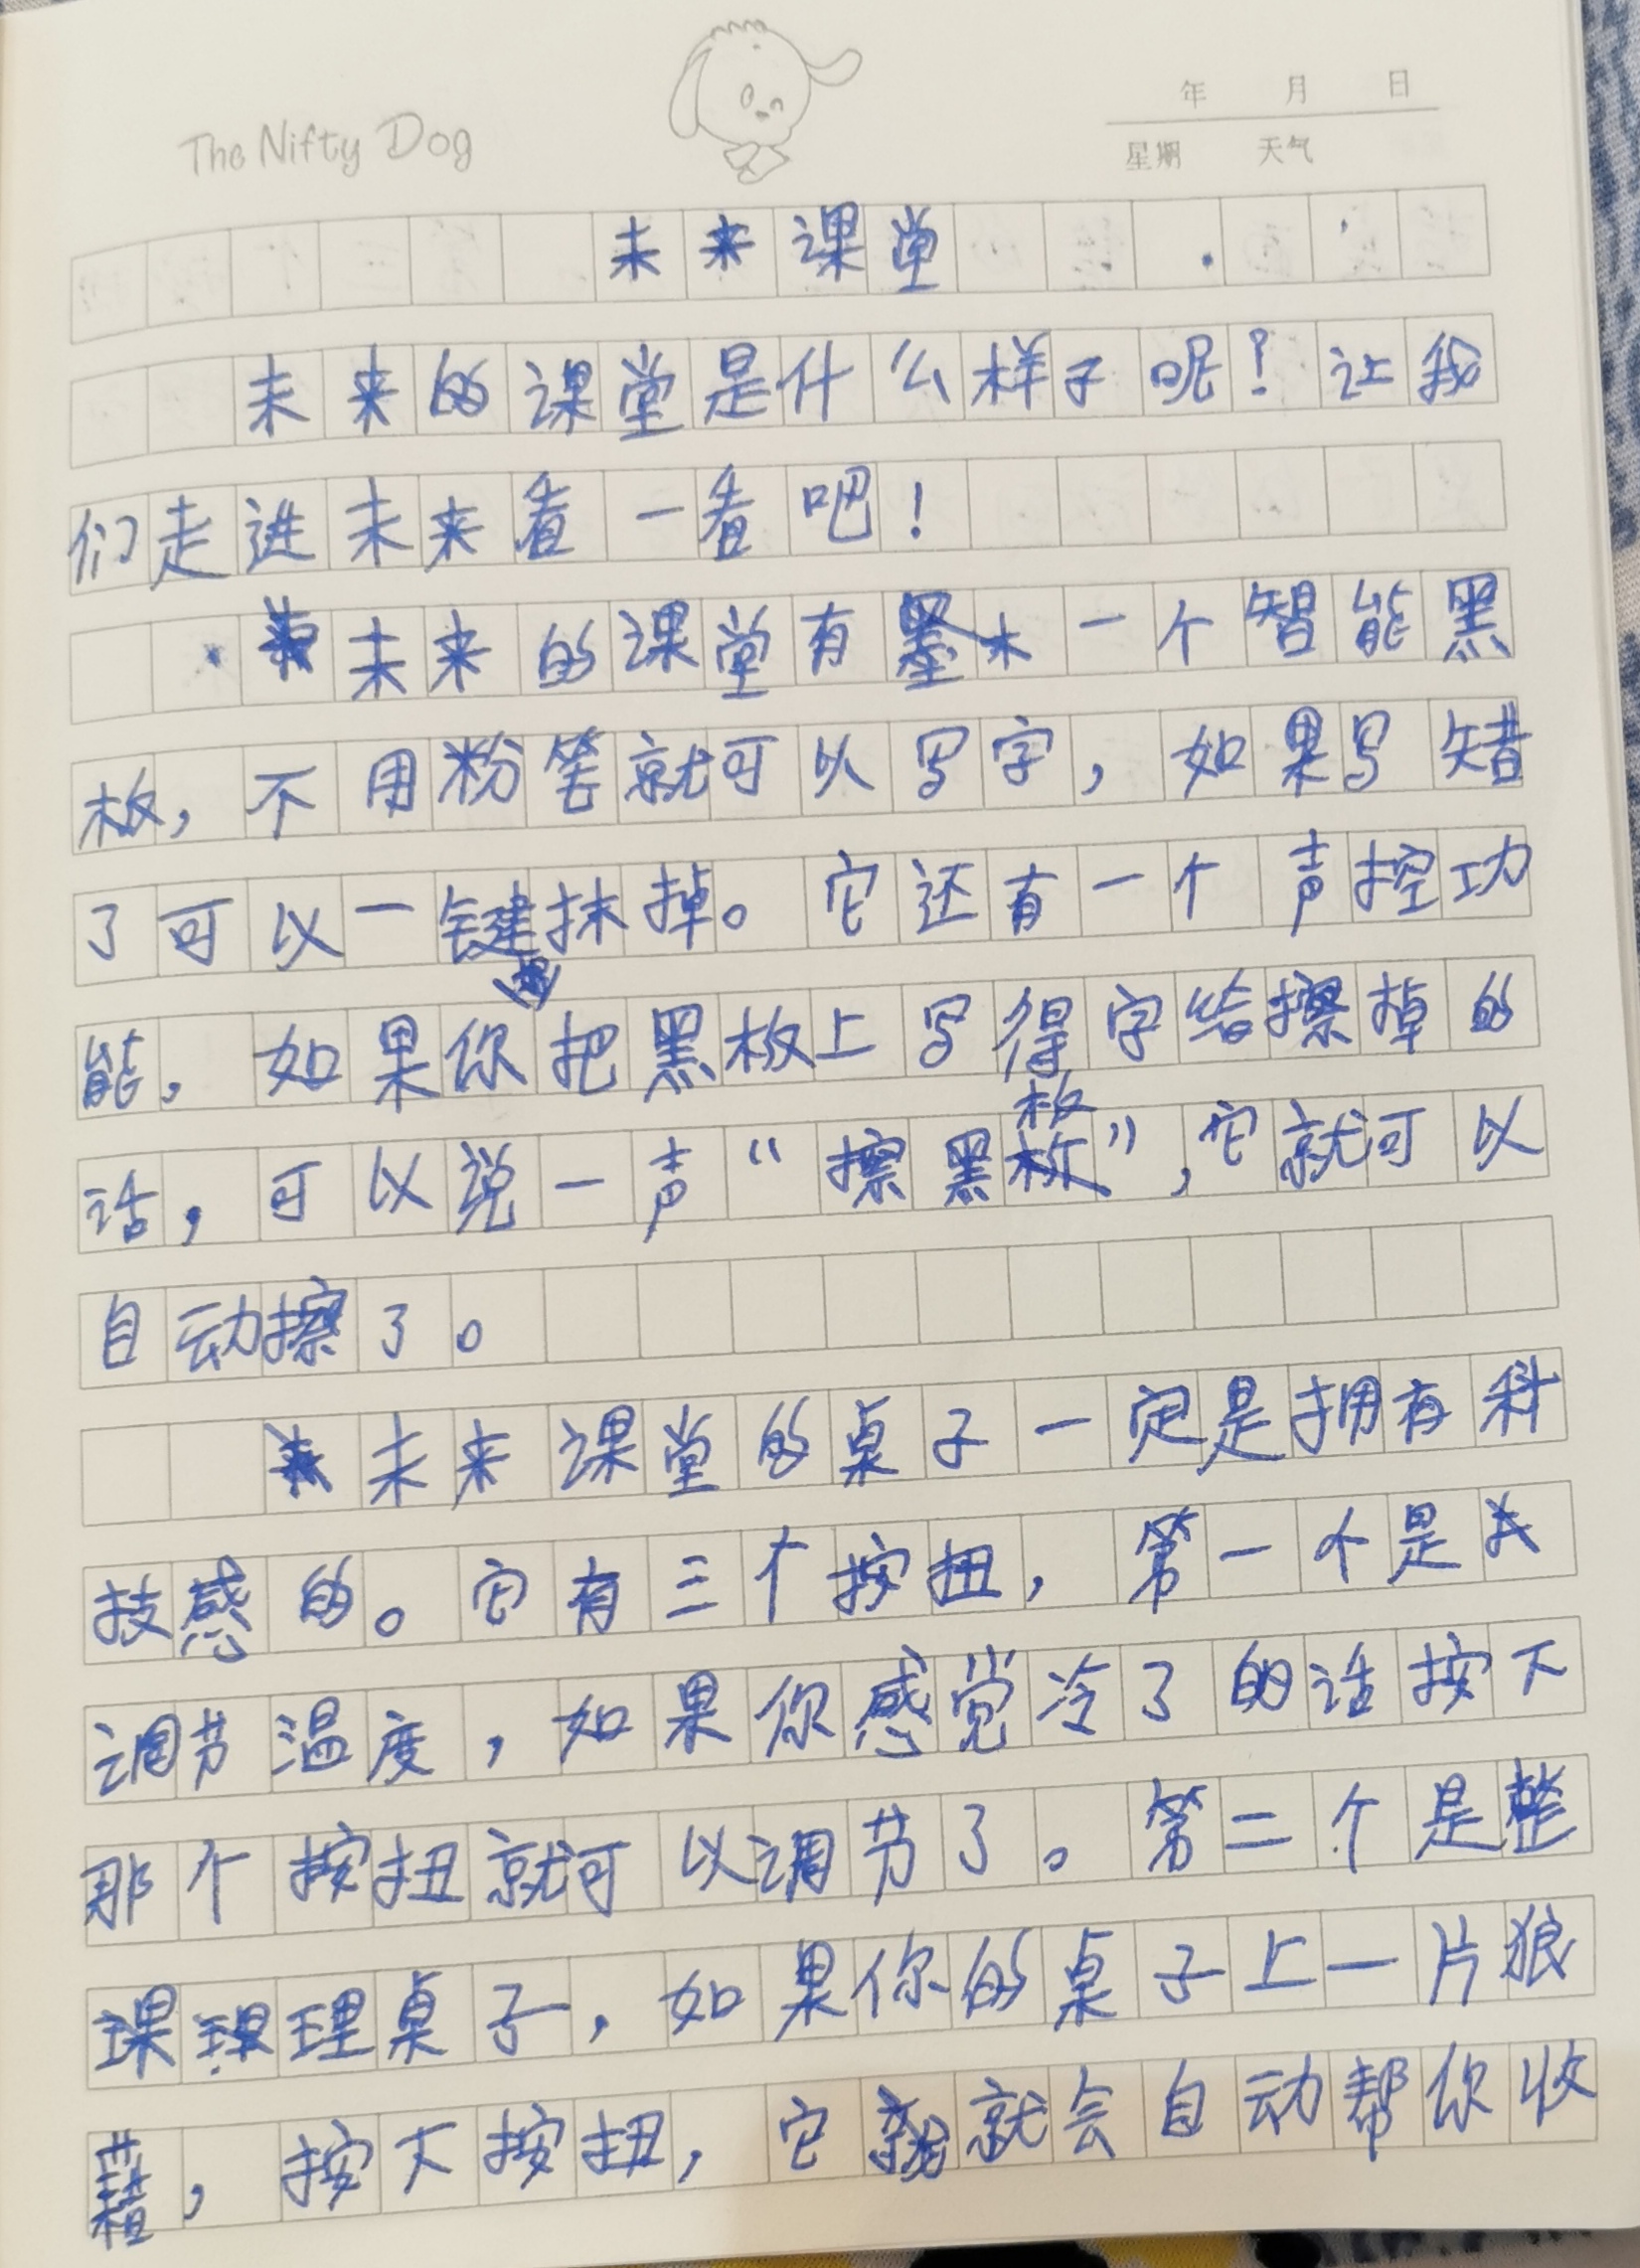 The Nifty Dog
年 月 日
星期 天气
未来课堂
未来的课堂是什么样子呢！让我
们走进未来看一看吧！
未来的课堂有一个智能黑
板，不用粉笔就可以写字，如果写错
了可以一键抹掉。它还有一个声控功
能，如果你把黑板上写得字给擦掉的
话，可以说一声“擦黑板”，它就可以
自动擦了。
未来课堂的桌子一定是拥有科
技感的。它有三个按扭，第一个是
调节温度，如果你感觉冷了的话按下
那个按扭就可以调节了。第二个是整
理桌子，如果你的桌子上一片狼
藉，按下按扭，它就会自动帮你收